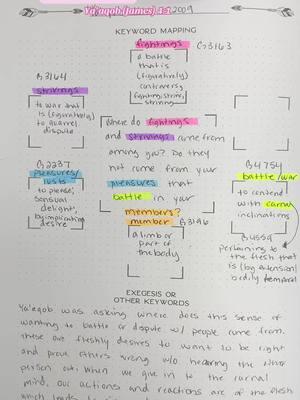 Ya'aqob (James) 4:1 2009
KEYWORD MAPPING
fightings G3163
a battle
that is
(figuratively)
controversy
fighting, strive,
striving
G3164
strivings
to war that
is (figuratively)
to quarrel,
dispute
Where do fightings
and strivings come from
among you? Do they
not come from your
pleasures that
battle in your
members?
G2237
pleasures/
lusts
to please,
sensual
delight,
by implication
desire
member G3196
a limb or
part of
the body
G4754
battle/war
to contend
with carnal
inclinations
G4559
pertaining to
the flesh that
is (by extension)
bodily, temporal
EXEGESIS OR
OTHER KEYWORDS
Ya'aqob was asking where does this sense of
wanting to battle or dispute w/ people come from.
These are fleshly desires to want to be right
and prove others wrong w/o hearing the other
person out. When we give in to the carnal
mind, our actions and reactions are of the flesh
which leads to